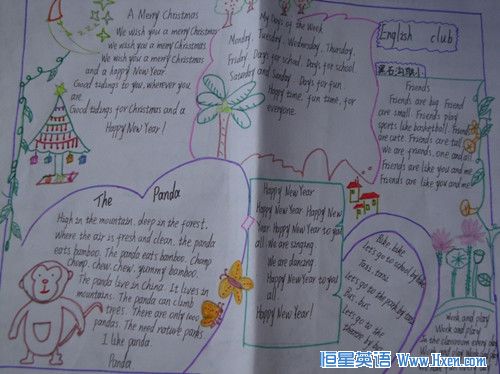 A Merry Christmas
We wish you a merry Christmas
We wish you a merry Christmas
We wish you a merry Christmas
and a happy New Year
Good tidings to you, wherever you
are.
Good tidings for Christmas and a
Happy New Year!
My Days of the Week
Monday, Tuesday, Wednesday, Thursday,
Friday Days for school. Days for school.
Saturday and Sunday Days for fun.
Happy time, fun time, for
everyone.
English club
Friends
Friends are big. Friend
are small. Friends play
sports like basketball. Friend
are cute. Friends are tall
We are friends, one and all.
Friends are like you and me
Friends are like you and me.
The Panda
High in the mountain, deep in the forest,
Where the air is fresh and clean, the panda
eats bamboo. The panda eats bamboo. Chomp
Chomp, chew, chew, yummy bamboo.
The panda live in China. It lives in
mountains. The panda can climb
trees. There are only 1000
pandas. The need nature parks
I like panda.
Panda
Happy New Year
Happy New Year. Happy New
Year Happy New Year to you
all. We are singing
We are dancing.
Happy New Year to you
all.
Happy New Year!
Bike, bike
Let's go to school by bike
Taxi, taxi
Let's go to the park by taxi
Bus, bus
Let's go to the
by bus
Work and play
Work and play
In the classroom every day
恒星英语 Www.Hxen.com